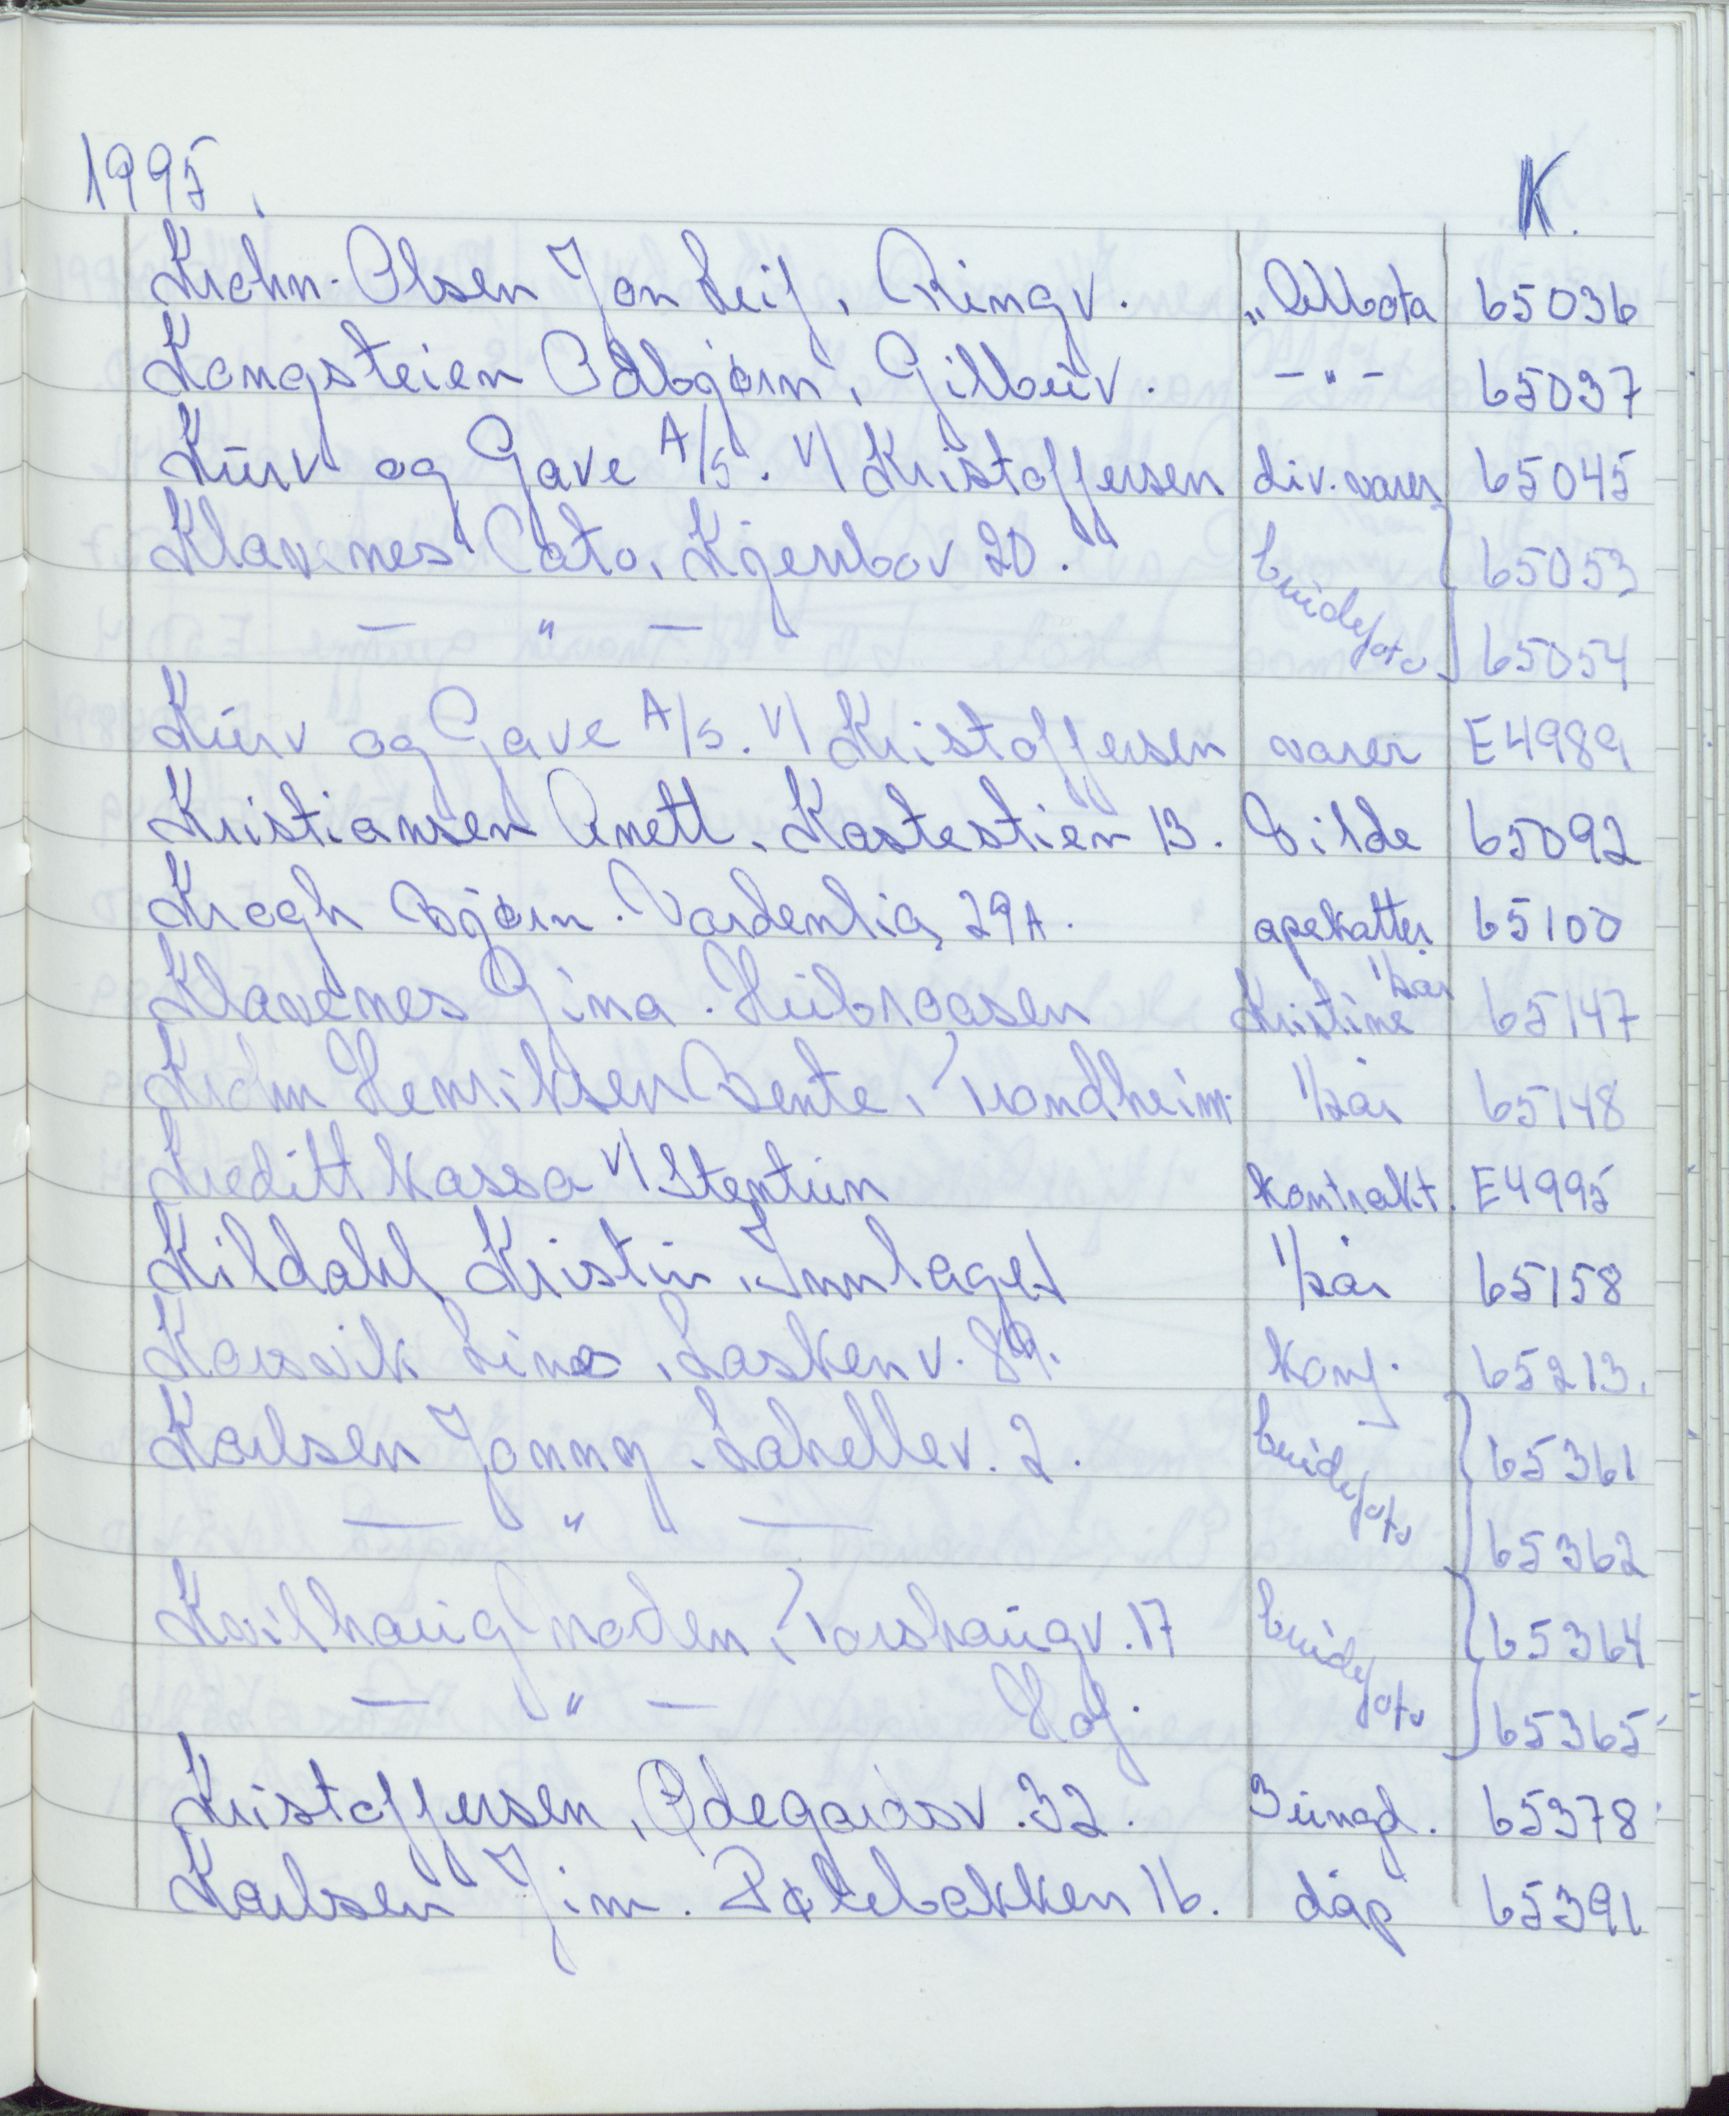 1995. K.
Krohn-Olsen Jon Leif, Ringv. 65036
Kongsteien Oddbjørn, Gilbuv. -"- 65037
Kurv og Gave A/S. v/ Kristoffersen div. varer 65045
Klavenes Cato, Kjerrbov 20. brudefoto 65053
— " — 65054
Kurv og Gave A/S. v/ Kristoffersen varer E4989
Kristiansen Anett, Kastestien 13. Silde 65092
Krogh Bjørn. Vardenlia 29A. apekatter 65100
Klavenes Gina. Hübroåsen Kristine 1/2år 65147
Krohn Henriksen Bente, Trondheim. 1/2år 65148
Kreditt kassa v/ Stentun kontrakt. E4995
Kildahl Kristin, Tunlaget 1/2år 65158
Korsvik Line, Laskenv. 89. konf. 65213.
Karlsen Jonny. Lahellev. 2. brudefoto 65361
— " — 65362
Kvilhaug Torshaugv. 17 brudefoto 65364
— " — Hof. 65365
Kristoffersen, Ødegårdsv. 32. 3 ungd. 65378
Karlsen Jim. 16. dåp 65391